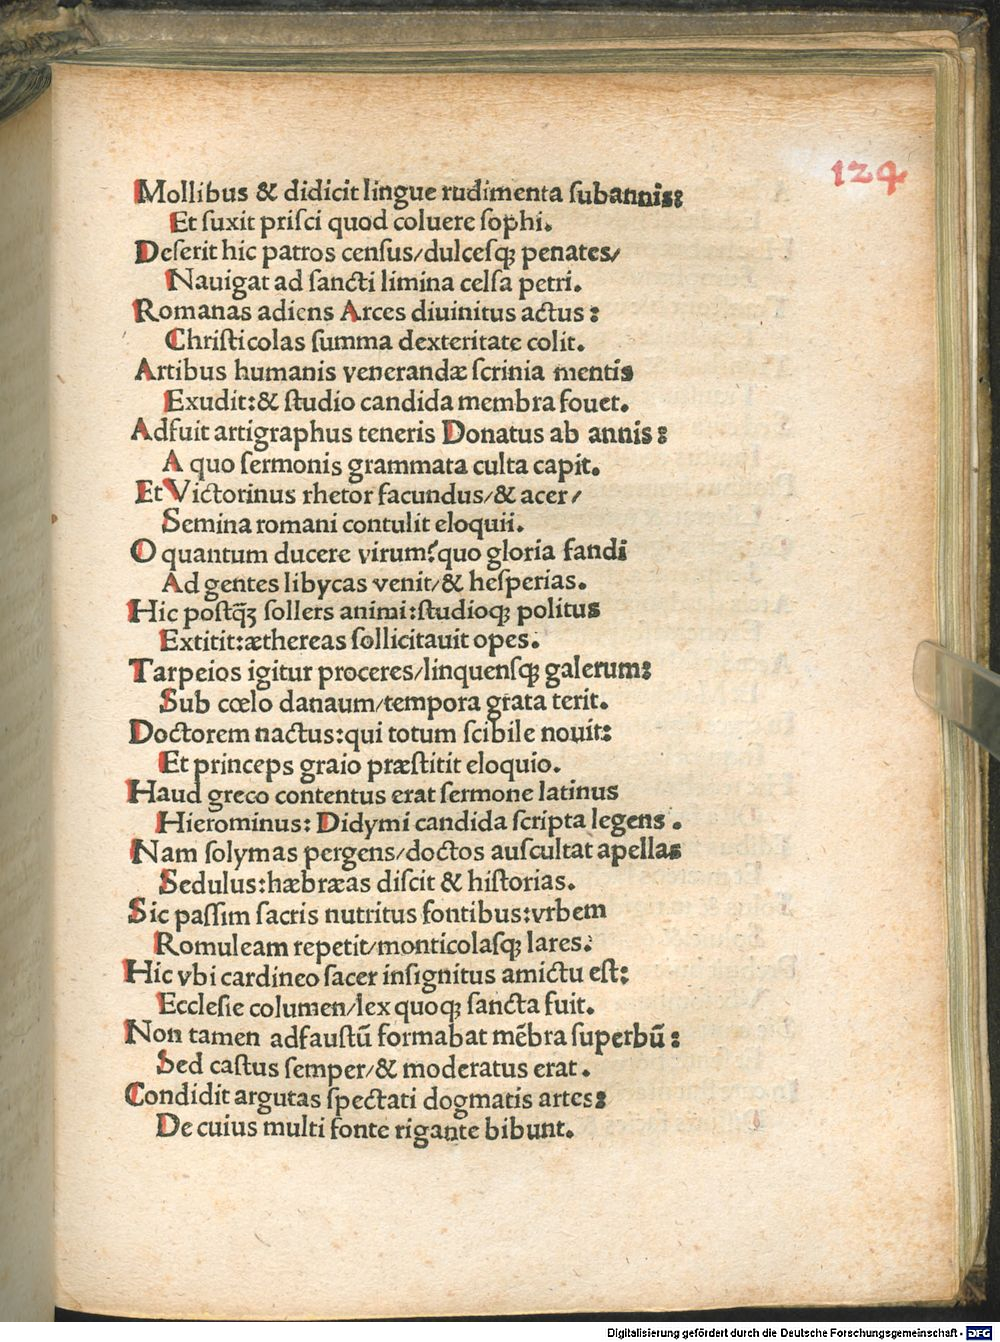 124
Mollibus & didicit lingue rudimenta ſubannis:
Et ſuxit priſci quod coluere ſophi.
Deſerit hic patros cenſus/dulceſqꝫ penates/
Nauigat ad ſancti limina celſa petri.
Romanas adiens Arces diuinitus actus:
Chriſticolas ſumma dexteritate colit.
Artibus humanis venerandæ ſcrinia mentis
Exudit:& ſtudio candida membra fouet.
Adfuit artigraphus teneris Donatus ab annis:
A quo ſermonis grammata culta capit.
Et Victorinus rhetor facundus/& acer/
Semina romani contulit eloquii.
O quantum ducere virum?quo gloria fandi
Ad gentes libycas venit/& heſperias.
Hic poſtq̄ꝫ ſollers animi:ſtudioqꝫ politus
Extitit:æthereas ſollicitauit opes.
Tarpeios igitur proceres/linquenſqꝫ galerum:
Sub cœlo danaum/tempora grata terit.
Doctorem nactus:qui totum ſcibile nouit:
Et princeps graio præſtitit eloquio.
Haud greco contentus erat ſermone latinus
Hierominus: Didymi candida ſcripta legens.
Nam ſolymas pergens/doctos auſcultat apellas
Sedulus:hæbræas diſcit & hiſtorias.
Sic paſſim ſacris nutritus fontibus:vrbem
Romuleam repetit/monticolaſqꝫ lares:
Hic vbi cardineo ſacer inſignitus amictu eſt:
Eccleſie columen/lex quoqꝫ ſancta fuit.
Non tamen adfauſtū formabat mēbra ſuperbū:
Sed caſtus ſemper/& moderatus erat.
Condidit argutas ſpectati dogmatis artes:
De cuius multi fonte rigante bibunt.
Digitalisierung gefördert durch die Deutsche Forschungsgemeinschaft - DFG